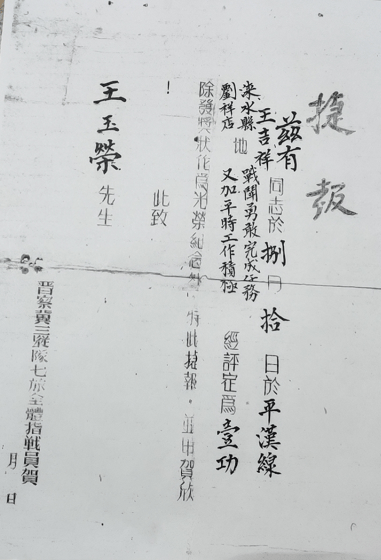 捷報
茲有
王吉祥同志於捌月拾日於平漢線
淶水縣
劉祥店地戰鬪勇敢完成任務
又加平時工作積極經評定爲壹功
除發獎狀作爲光榮紀念外特此捷報。並申賀欣
！
此致
王玉榮先生
晋察冀三縱隊七旅全體指戰員賀
月日